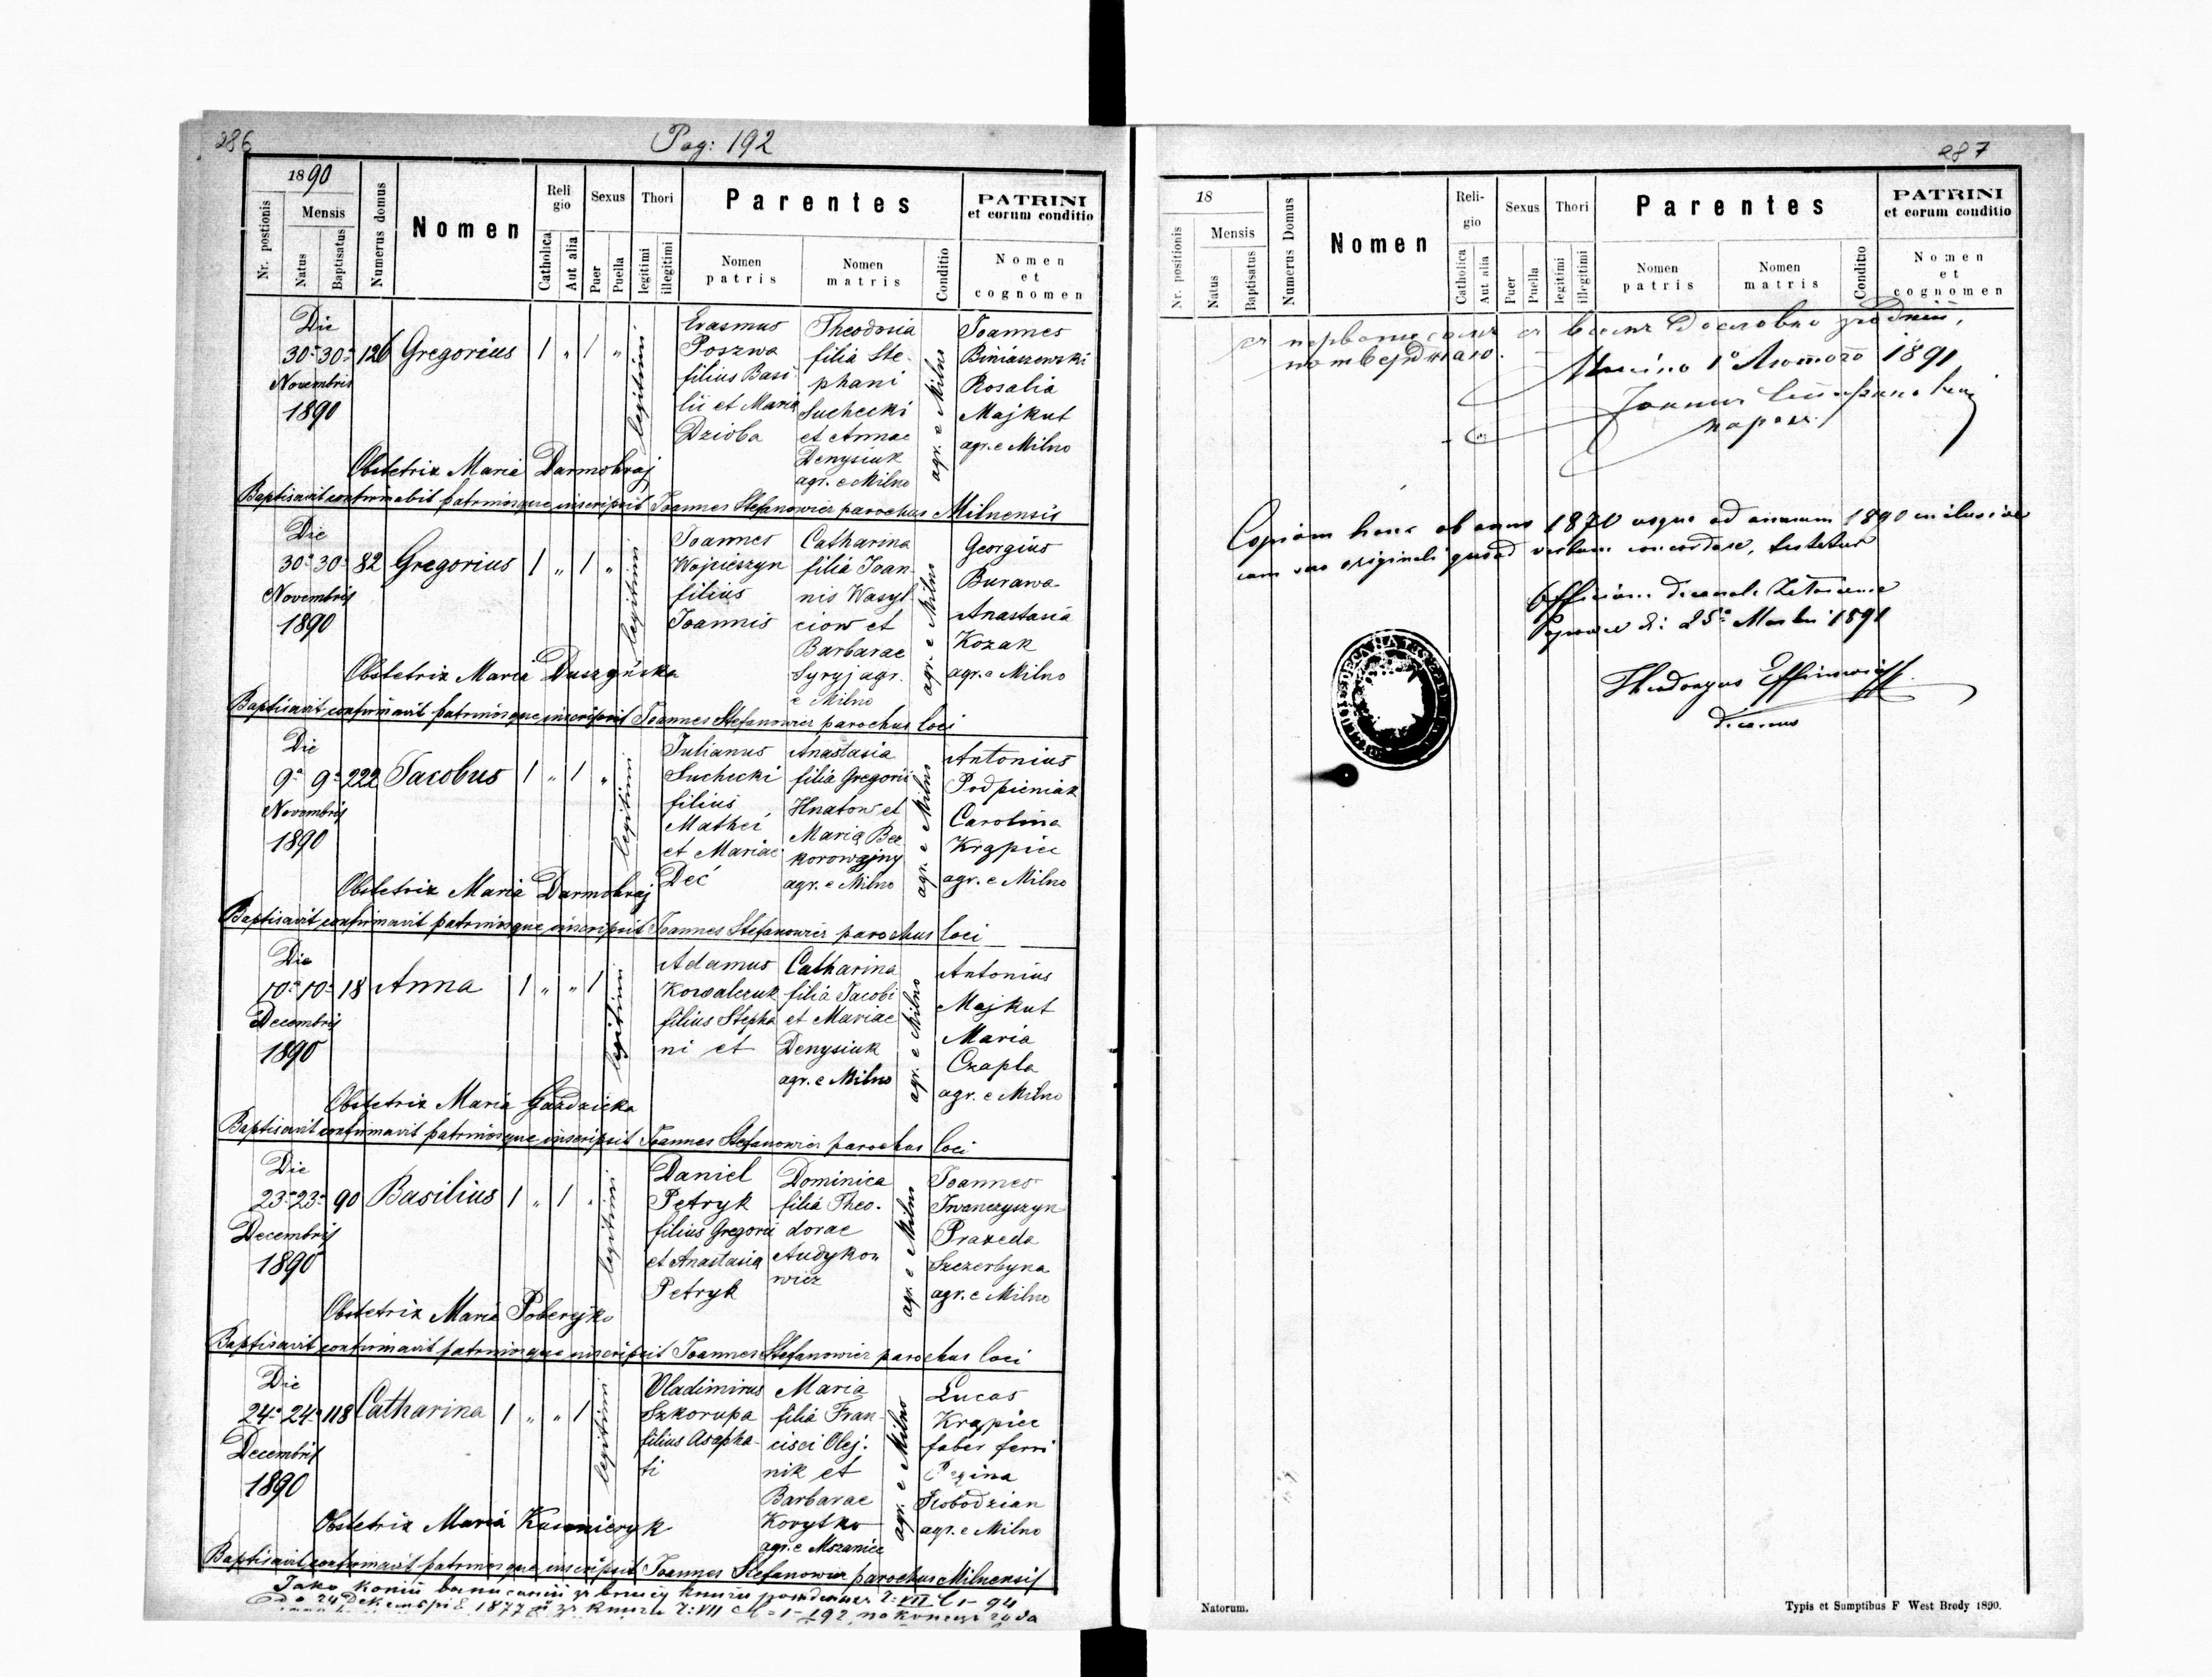 286
Pag: 192
1890
Nr. postionis
Mensis
Natus
Baptisatus
Numerus domus
Nomen
Religio
Catholica
Aut alia
Sexus
Puer
Puella
Thori
legitimi
illegitimi
Parentes
Nomen patris
Nomen matris
Conditio
PATRINI
et eorum conditio
Nomen
et
cognomen
Die
30ᵃ 30ᵃ 126 Gregorius 1 " 1 "
Novembris
1890
legitimi
Erasmus
Poszwa
filius Basi
lii et Maria
Dzioba
Theodosia
filia Ste-
phani
Suchecki
et Annae
Denysiuk
agr. e Milno
agr. e Milno
Joannes
Biniaszewski
Rosalia
Majkut
agr. e Milno
Obstetrix Maria Darmohraj
Baptisavit confirmabit patrinosque inscripsit Joannes Stefanowicz parochus Milnensis
Die
30ᵃ 30ᵃ 82 Gregorius 1 " 1 "
Novembris
1890
legitimi
Joannes
Wojcieszyn
filius
Joannis
Catharina
filia Joan-
nis Wasyl
ciow et
Barbarae
Syryj agr.
e Milno
agr. e Milno
Georgius
Burawa
Anastasia
Kozak
agr. e Milno
Obstetrix Maria Duszyńska
Baptisavit confirmavit patrinosque inscripsit Joannes Stefanowicz parochus loci
Die
9ᵃ 9ᵃ 222 Jacobus 1 " 1 "
Novembris
1890
legitimi
Julianus
Suchecki
filius
Mathei
et Mariae
Deć
Anastasia
filia Gregorii
Hnatow et
Maria Bez
korowajny
agr. e Milno
agr. e Milno
Antonius
Podpieniak
Carolina
Krąpiec
agr. e Milno
Obstetrix Maria Darmohraj
Baptisavit confirmavit patrinosque inscripsit Joannes Stefanowicz parochus loci
Die
10ᵃ 10ᵃ 18 Anna 1 " " 1
Decembris
1890
legitimi
Adamus
Kowalczuk
filius Stepha
ni et
Catharina
filia Jacobi
et Mariae
Denysiuk
agr. e Milno
agr. e Milno
Antonius
Majkut
Maria
Czapla
agr. e Milno
Obstetrix Maria Gazdzicka
Baptisavit confirmavit patrinosque inscripsit Joannes Stefanowicz parochus loci
Die
23ᵃ 23ᵃ 90 Basilius 1 " 1 "
Decembris
1890
legitimi
Daniel
Petryk
filius Gregorii
et Anastasia
Petryk
Dominica
filia Theo-
dorae
Audyko-
wicz
agr. e Milno
Joannes
Iwanczyszyn
Praxeda
Szczerbyna
agr. e Milno
Obstetrix Maria Poberejko
Baptisavit confirmavit patrinosque inscripsit Joannes Stefanowicz parochus loci
Die
24ᵃ 24ᵃ 118 Catharina 1 " " 1
Decembris
1890
legitimi
Vladimirus
Szkorupa
filius Asapha-
ti
Maria
filia Fran-
cisci Olej-
nik et
Barbarae
Korytko
agr. e Mszaniec
agr. e Milno
Lucas
Krąpiec
faber ferri
Regina
Slobodzian
agr. e Milno
Obstetrix Maria
Baptisavit confirmavit patrinosque inscripsit Joannes Stefanowicz parochus Milnensis
287
18
Nr. positionis
Mensis
Natus
Baptisatus
Numerus Domus
Nomen
Religio
Catholica
Aut alia
Sexus
Puer
Puella
Thori
legitimi
illegitimi
Parentes
Nomen patris
Nomen matris
Conditio
PATRINI
et eorum conditio
Nomen
et
cognomen
1891
Copiam hanc ab anno 1870 usque ad annum 1890 inclusive
cum suo originali quoad verbum concordare, testatur
Officium decanale
di: 25ᵃ Martii 1891
decanus
Natorum.
Typis et Sumptibus F West Brody 1890.